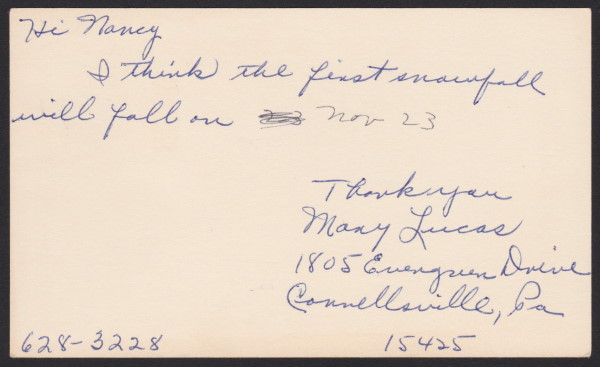 Hi Nancy
I think the first snowfall
will fall on Nov 23
Thank you
Mary Lucas
1805 Evergreen Drive
Connellsville, Pa
628-3228 15425